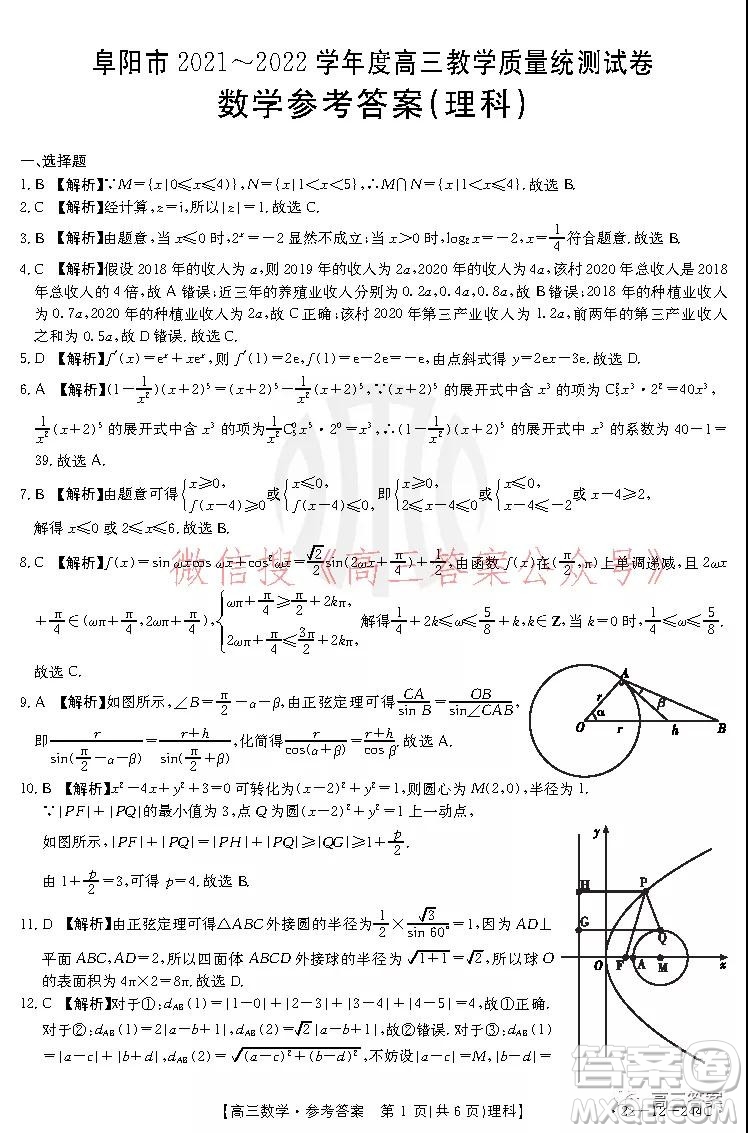 阜阳市 2021～2022 学年度高三教学质量统测试卷
数学参考答案(理科)
一、选择题
1. B 【解析】∵M={x|0≤x≤4)},N={x|1<x<5},∴M⋂N={x|1<x≤4}.故选 B.
2. C 【解析】经计算,z=i,所以|z|=1.故选 C.
3. B 【解析】由题意,当 x≤0 时,2^x=-2 显然不成立;当 x>0 时,log₂x=-2,x=1/4符合题意.故选 B.
4. C 【解析】假设 2018 年的收人为 a,则 2019 年的收人为 2a,2020 年的收人为 4a,该村 2020 年总收人是 2018
年总收人的 4 倍,故 A 错误;近三年的养殖业收人分别为 0.2a,0.4a,0.8a,故 B 错误;2018 年的种植业收人
为 0.7a,2020 年的种植业收人为 2a,故 C 正确;该村 2020 年第三产业收人为 1.2a,前两年的第三产业收人
之和为 0.5a,故 D 错误.故选 C.
5. D 【解析】f′(x)=e^x+xe^x,则 f′(1)=2e,f(1)=e-2e=-e,由点斜式得 y=2ex-3e.故选 D.
6. A 【解析】(1-1/x²)(x+2)⁵=(x+2)⁵-1/x²(x+2)⁵,∵(x+2)⁵ 的展开式中含 x³ 的项为 C₅²x³·2²=40x³,
1/x²(x+2)⁵ 的展开式中含 x³ 的项为1/x²C₅⁰x⁵·2⁰=x³,∴(1-1/x²)(x+2)⁵ 的展开式中 x³ 的系数为 40-1=
39.故选 A.
7. B 【解析】由题意可得{x≥0, f(x-4)≥0或{x≤0, f(x-4)≤0,即{x≥0, 2≤x-4≤0或{x≤0, -2≤x-4≤0或 x-4≥2,
解得 x≤0 或 2≤x≤6.故选 B.
8. C 【解析】f(x)=sin ωxcos ωx+cos²ωx=√2/2sin(2ωx+π/4)+1/2,由函数 f(x)在(π/2,π)上单调递减,且 2ωx
+π/4∈(ωπ+π/4,2ωπ+π/4),{ωπ+π/4≥π/2+2kπ, 2ωπ+π/4≤3π/2+2kπ, 解得1/4+2k≤ω≤5/8+k,k∈Z,当 k=0 时,1/4≤ω≤5/8.
故选 C.
9. A 【解析】如图所示,∠B=π/2-α-β,由正弦定理可得CA/sin B=OB/sin∠CAB,
即r/sin(π/2-α-β)=r+h/sin(π/2+β),化简得r/cos(α+β)=r+h/cos β.故选 A.
A
r
β
α
O
r
h
B
10. B 【解析】x²-4x+y²+3=0 可转化为(x-2)²+y²=1,则圆心为 M(2,0),半径为 1.
∵|PF|+|PQ|的最小值为 3,点 Q 为圆(x-2)²+y²=1 上一动点,
如图所示,|PF|+|PQ|=|PH|+|PQ|≥|QG|≥1+p/2.
由 1+p/2=3,可得 p=4.故选 B.
y
H
P
G
Q
O
F
A
M
x
11. D 【解析】由正弦定理可得△ABC外接圆的半径为1/2×√3/sin 60°=1,因为 AD⊥
平面 ABC,AD=2,所以四面体 ABCD 外接球的半径为√1+1=√2,所以球 O
的表面积为 4π×2=8π.故选 D.
12. C 【解析】对于①:d_AB(1)=|1-0|+|2-3|+|3-4|+|4-5|=4,故①正确.
对于②:d_AB(1)=2|a-b+1|,d_AB(2)=√2|a-b+1|,故②错误.对于③:d_AB(1)
=|a-c|+|b+d|,d_AB(2)=√(a-c)²+(b-d)²,不妨设|a-c|=M,|b-d|=
【高三数学·参考答案 第 1 页(共 6 页)理科】
·22-12-244C·
微信搜《高三答案公众号》
高三答案
答案圈
MXQE.COM